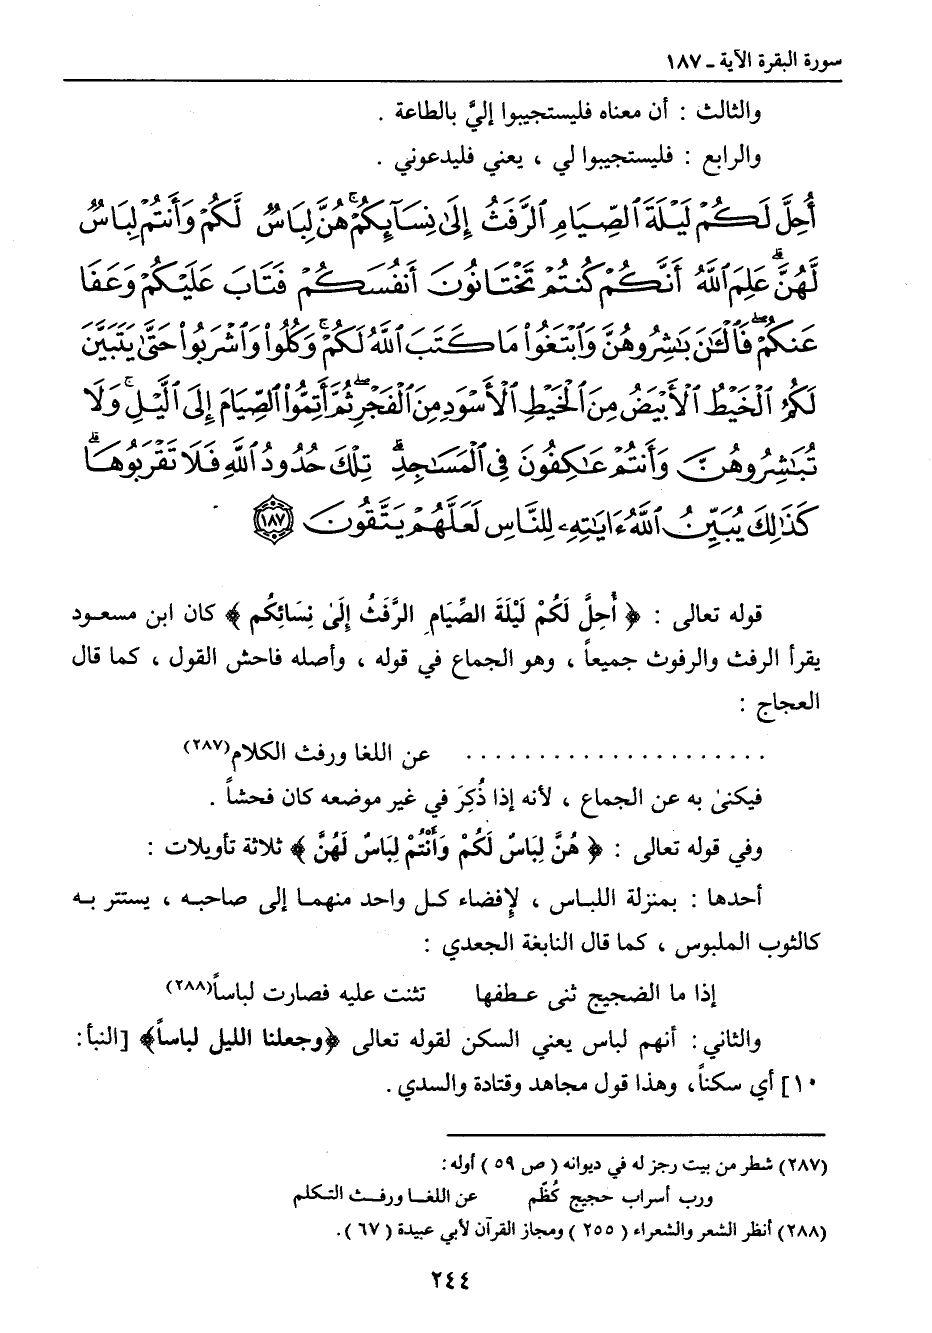 سورة البقرة الآية ـ ١٨٧
والثالث : أن معناه فليستجيبوا إليَّ بالطاعة .
والرابع : فليستجيبوا لي ، يعني فليدعوني .
أُحِلَّ لَكُمْ لَيْلَةَ ٱلصِّيَامِ ٱلرَّفَثُ إِلَىٰ نِسَآئِكُمْ ۚ هُنَّ لِبَاسٌ لَّكُمْ وَأَنتُمْ لِبَاسٌ
لَّهُنَّ ۗ عَلِمَ ٱللَّهُ أَنَّكُمْ كُنتُمْ تَخْتَانُونَ أَنفُسَكُمْ فَتَابَ عَلَيْكُمْ وَعَفَا
عَنكُمْ ۖ فَٱلْـَٰٔنَ بَـٰشِرُوهُنَّ وَٱبْتَغُوا۟ مَا كَتَبَ ٱللَّهُ لَكُمْ ۚ وَكُلُوا۟ وَٱشْرَبُوا۟ حَتَّىٰ يَتَبَيَّنَ
لَكُمُ ٱلْخَيْطُ ٱلْأَبْيَضُ مِنَ ٱلْخَيْطِ ٱلْأَسْوَدِ مِنَ ٱلْفَجْرِ ۖ ثُمَّ أَتِمُّوا۟ ٱلصِّيَامَ إِلَى ٱلَّيْلِ ۚ وَلَا
تُبَـٰشِرُوهُنَّ وَأَنتُمْ عَـٰكِفُونَ فِى ٱلْمَسَـٰجِدِ ۗ تِلْكَ حُدُودُ ٱللَّهِ فَلَا تَقْرَبُوهَا ۗ
كَذَٰلِكَ يُبَيِّنُ ٱللَّهُ ءَايَـٰتِهِۦ لِلنَّاسِ لَعَلَّهُمْ يَتَّقُونَ ١٨٧
قوله تعالى : ﴿ أُحِلَّ لَكُمْ لَيْلَةَ الصِّيَامِ الرَّفَثُ إِلَىٰ نِسَائِكُم ﴾ كان ابن مسعود
يقرأ الرفث والرفوث جميعاً ، وهو الجماع في قوله ، وأصله فاحش القول ، كما قال
العجاج :
. . . . . . . . . . . . . . . . . . . . عن اللغا ورفث الكلام(٢٨٧)
فيكنىٰ به عن الجماع ، لأنه إذا ذُكِرَ في غير موضعه كان فحشاً .
وفي قوله تعالى : ﴿ هُنَّ لِبَاسٌ لَكُمْ وَأَنْتُمْ لِبَاسٌ لَهُنَّ ﴾ ثلاثة تأويلات :
أحدها : بمنزلة اللباس ، لإفضاء كل واحد منهما إلى صاحبه ، يستتر به
كالثوب الملبوس ، كما قال النابغة الجعدي :
إذا ما الضجيج ثنى عطفها تثنت عليه فصارت لباساً(٢٨٨)
والثاني : أنهم لباس يعني السكن لقوله تعالى ﴿وجعلنا الليل لباساً﴾ [النبأ :
١٠] أي سكناً ، وهذا قول مجاهد وقتادة والسدي .
(٢٨٧) شطر من بيت رجز له في ديوانه ( ص ٥٩ ) أوله :
ورب أسراب حجيج كُظَّم عن اللغا ورفث التكلم
(٢٨٨) أنظر الشعر والشعراء ( ٢٥٥ ) ومجاز القرآن لأبي عبيدة ( ٦٧ ) .
٢٤٤